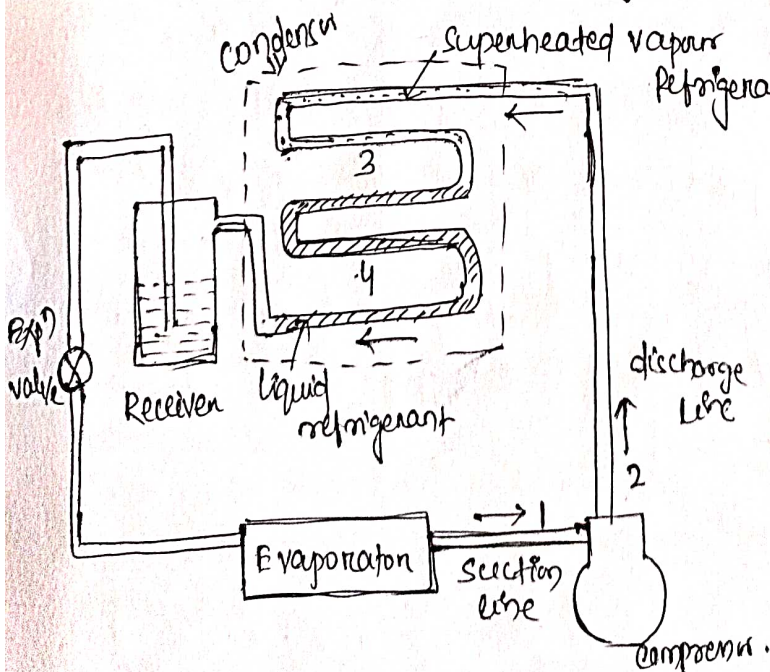 Condensor
Superheated vapour
Refrigera
3
4
Expn
valve
Receiver
Liquid
refrigerant
discharge
Line
2
1
Evaporator
Suction
line
Compressor.